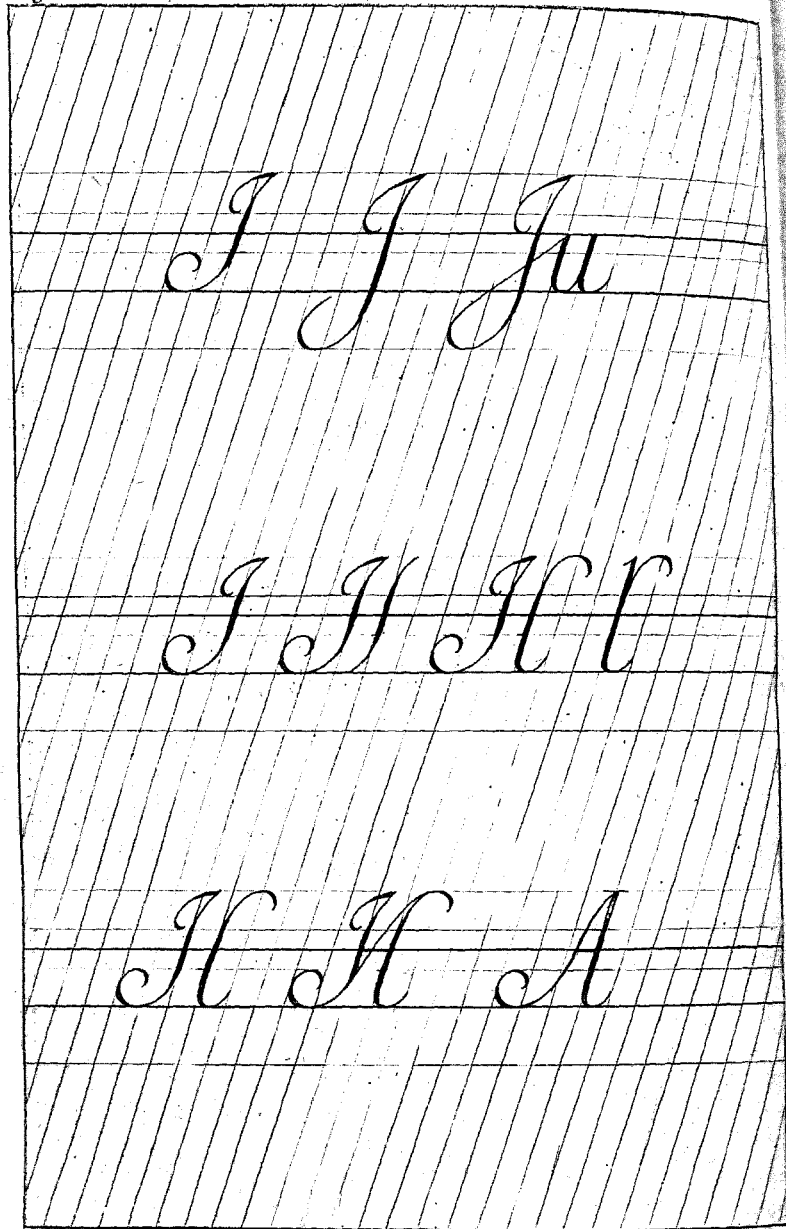 I J Ju
I H H l
H K A